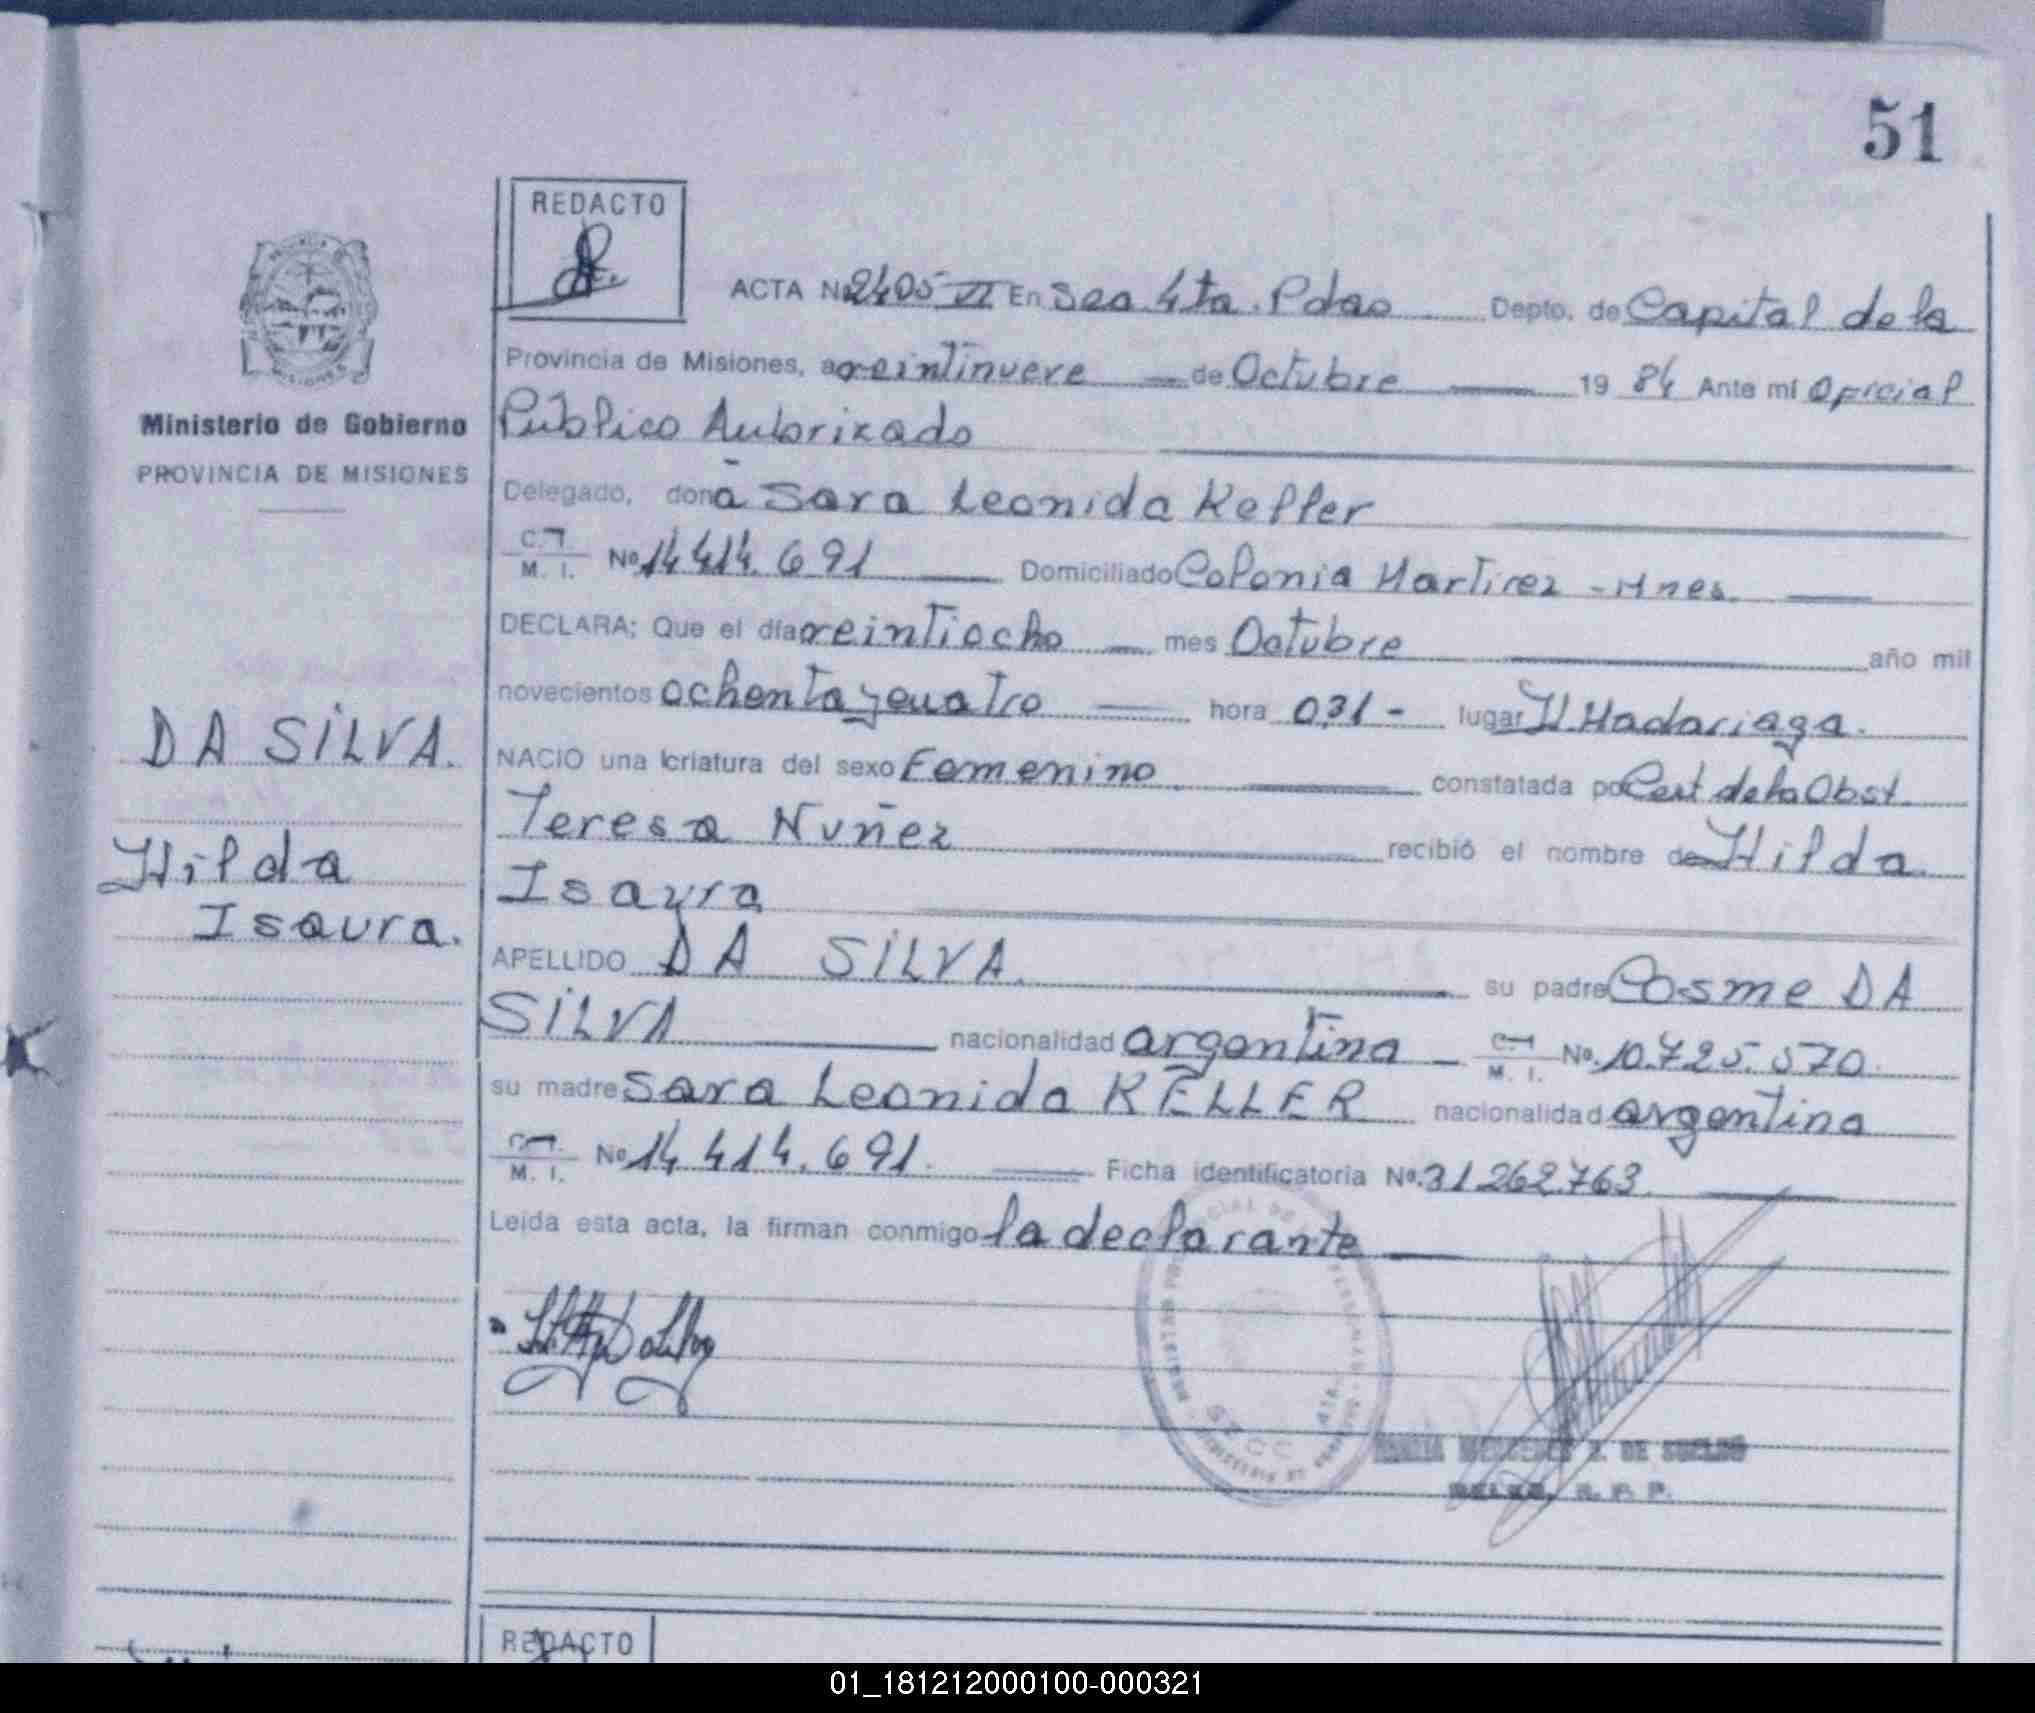 51
REDACTO
ACTA Nº 2405 VI En Sec. 4ta. Pdas Depto. de Capital de la
Provincia de Misiones, a veintinueve de Octubre 19 84 Ante mí Oficial
Ministerio de Gobierno
Público Autorizado
PROVINCIA DE MISIONES
Delegado, doña Sara Leonida Keller
C.I. M. I. Nº 14.414.691 Domiciliado Colonia Martirez - Mnes.
DECLARA: Que el día veintiocho mes Octubre año mil
novecientos ochenta y cuatro hora 0,31 - lugar H. Madariaga.
DA SILVA.
NACIO una criatura del sexo Femenino constatada por Cert de la Obst.
Teresa Nuñez recibió el nombre de Hilda
Hilda
Isaura
Isaura.
APELLIDO DA SILVA. su padre Cosme DA
SILVA nacionalidad argentina C.I. M. I. Nº. 10.725.570.
su madre Sara Leonida KELLER nacionalidad argentina
C.I. M. I. Nº 14.414.691. Ficha identificatoria Nº. 31262.763.
Leída esta acta, la firman conmigo la declarante
DE SUELDO
REDACTO
01_181212000100-000321